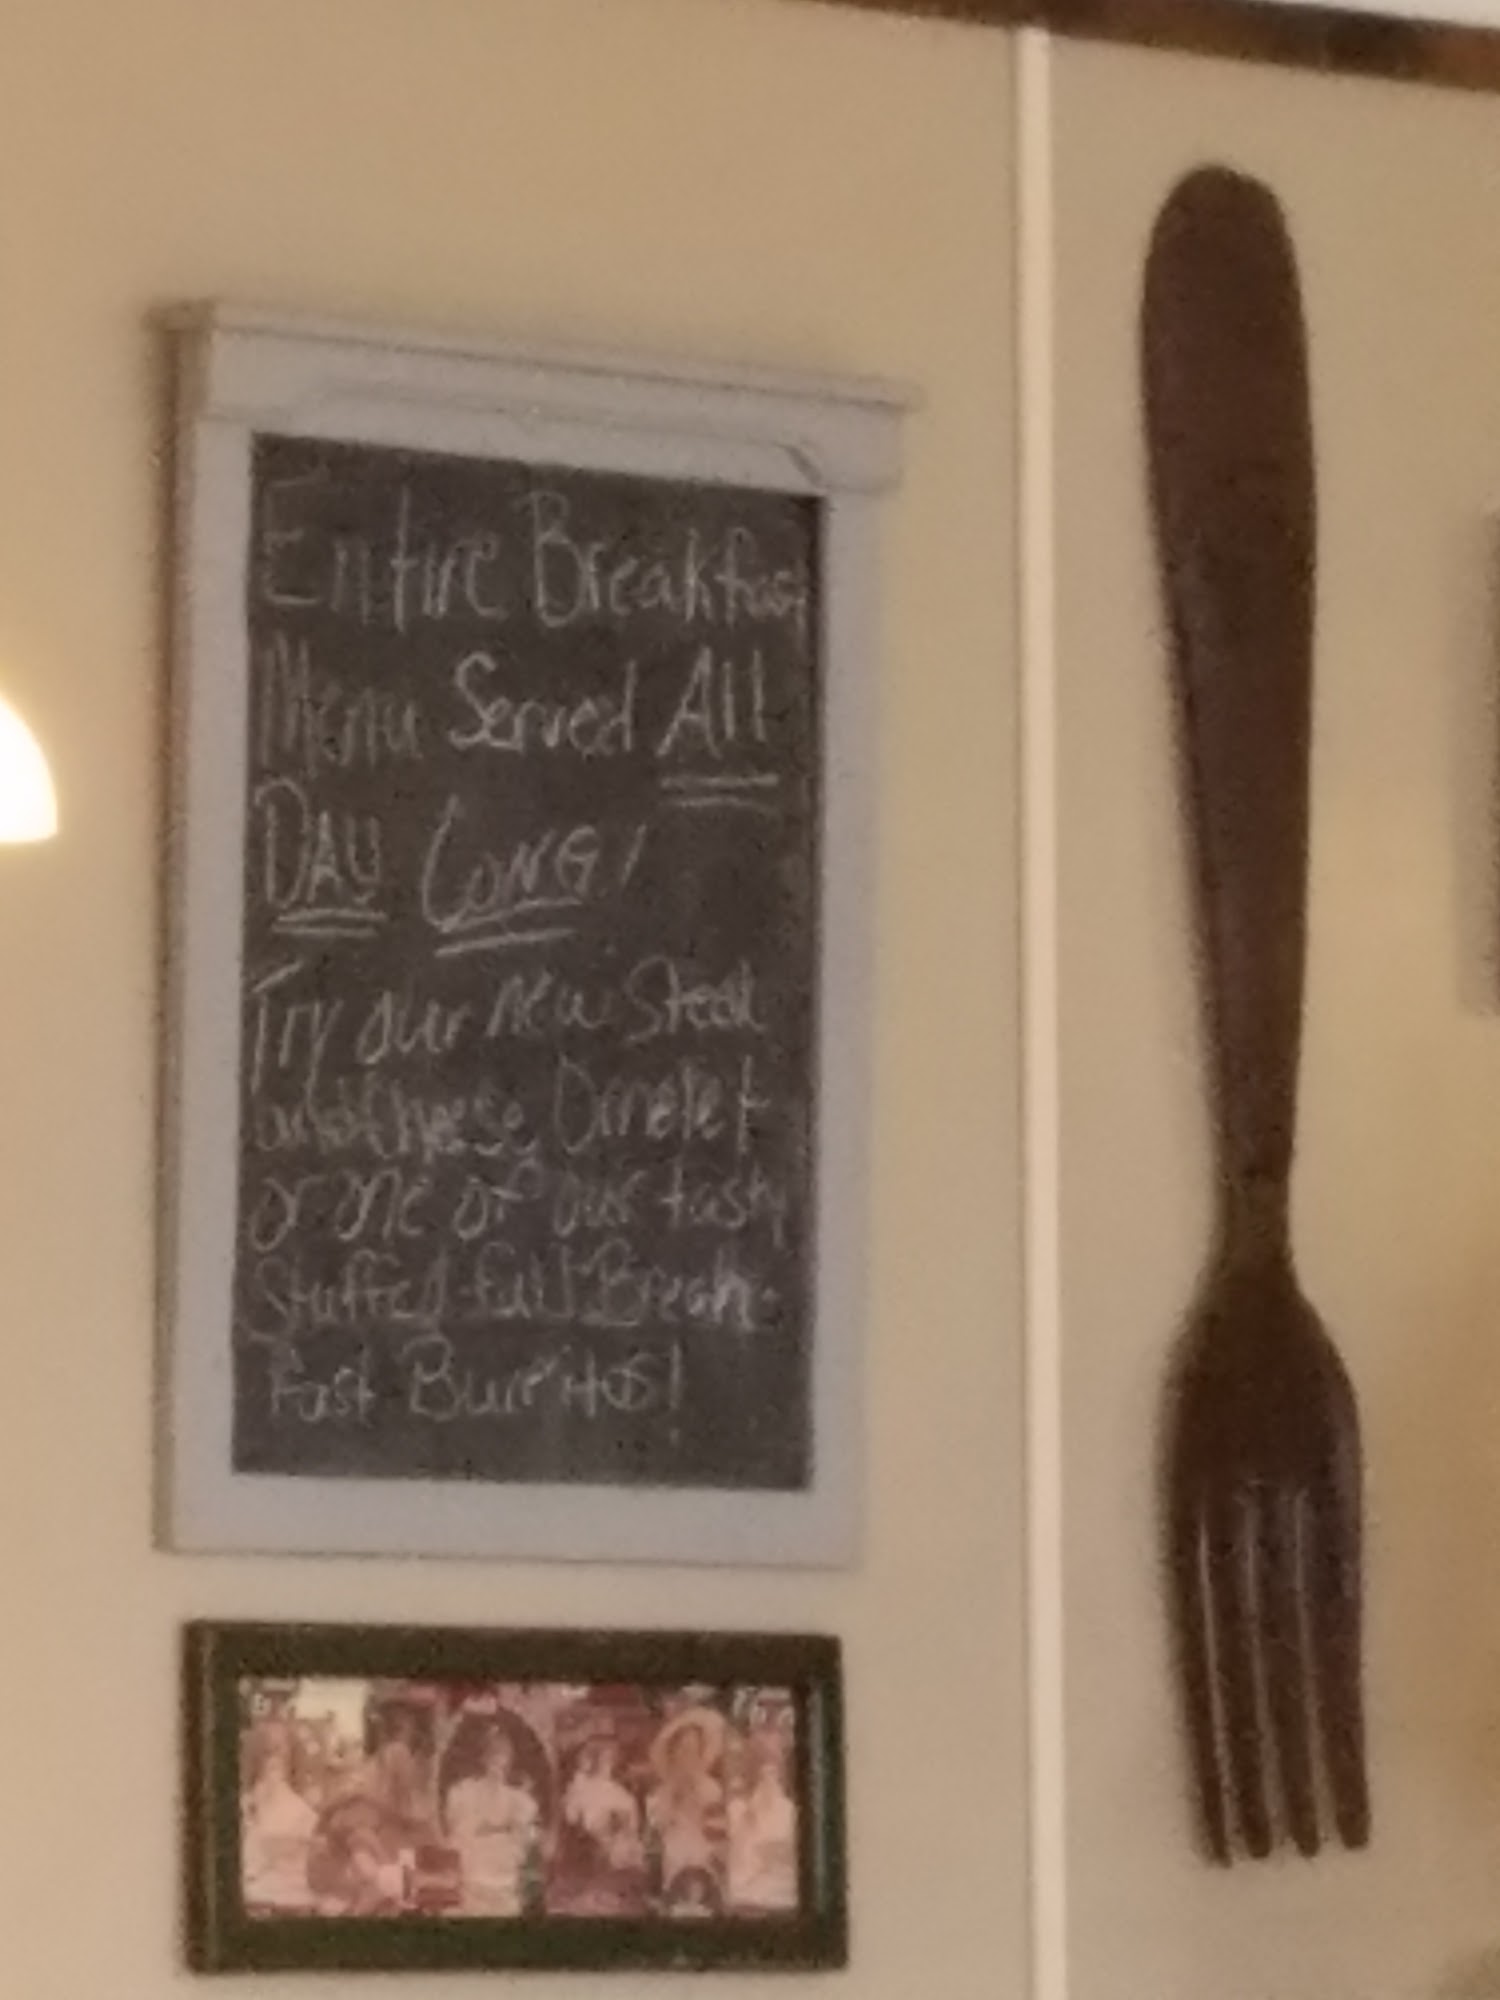 Entire Breakfast
Menu Served All
DAY LONG!
Try our new Steak
and Cheese Omelet
or one of our tasty
Stuffed full Break-
fast Burritos!